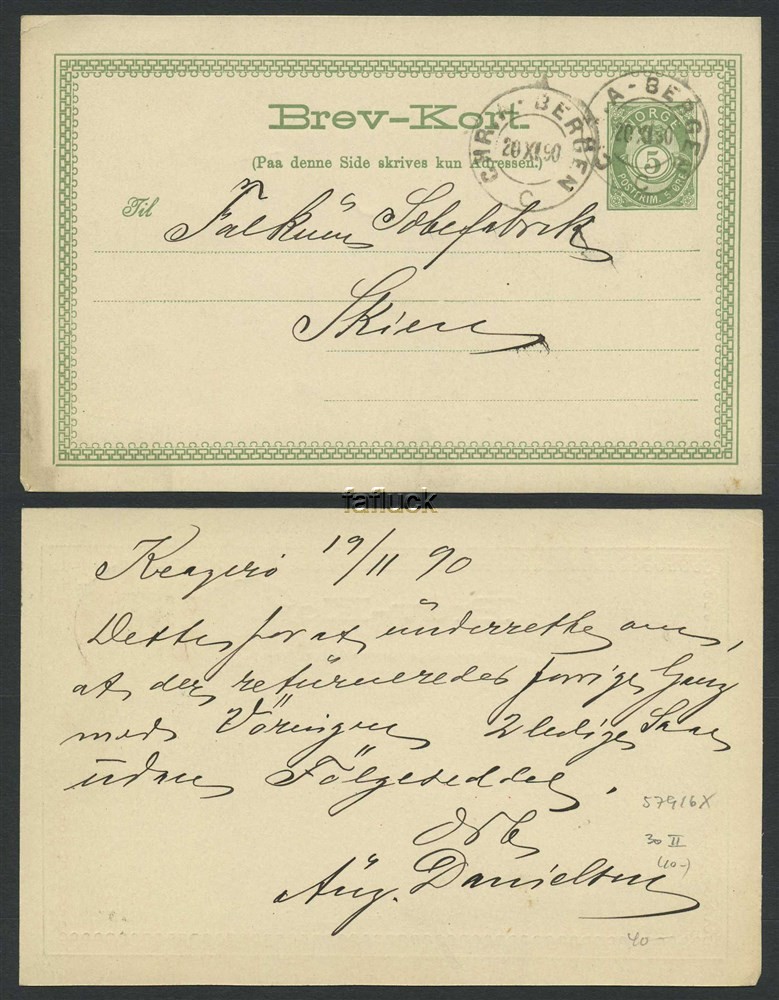 Brev-Kort.
(Paa denne Side skrives kun Adressen.)
CHR.A-BERGEN
20 XI 90
C
A-BERGEN
20 XI 90
C
NORGE
5
POSTFRIM. 5 ØRE
Til
Falkum Sæbefabrik
Skien
fafluck
Kragerö 19/11 90
Dette for at underrette om,
at der returneredes forrige Gang
med Vöringen 2 ledige
uden Fölgeseddel.
Aug. Danielsen
57916X
30 II
(10-)
40-